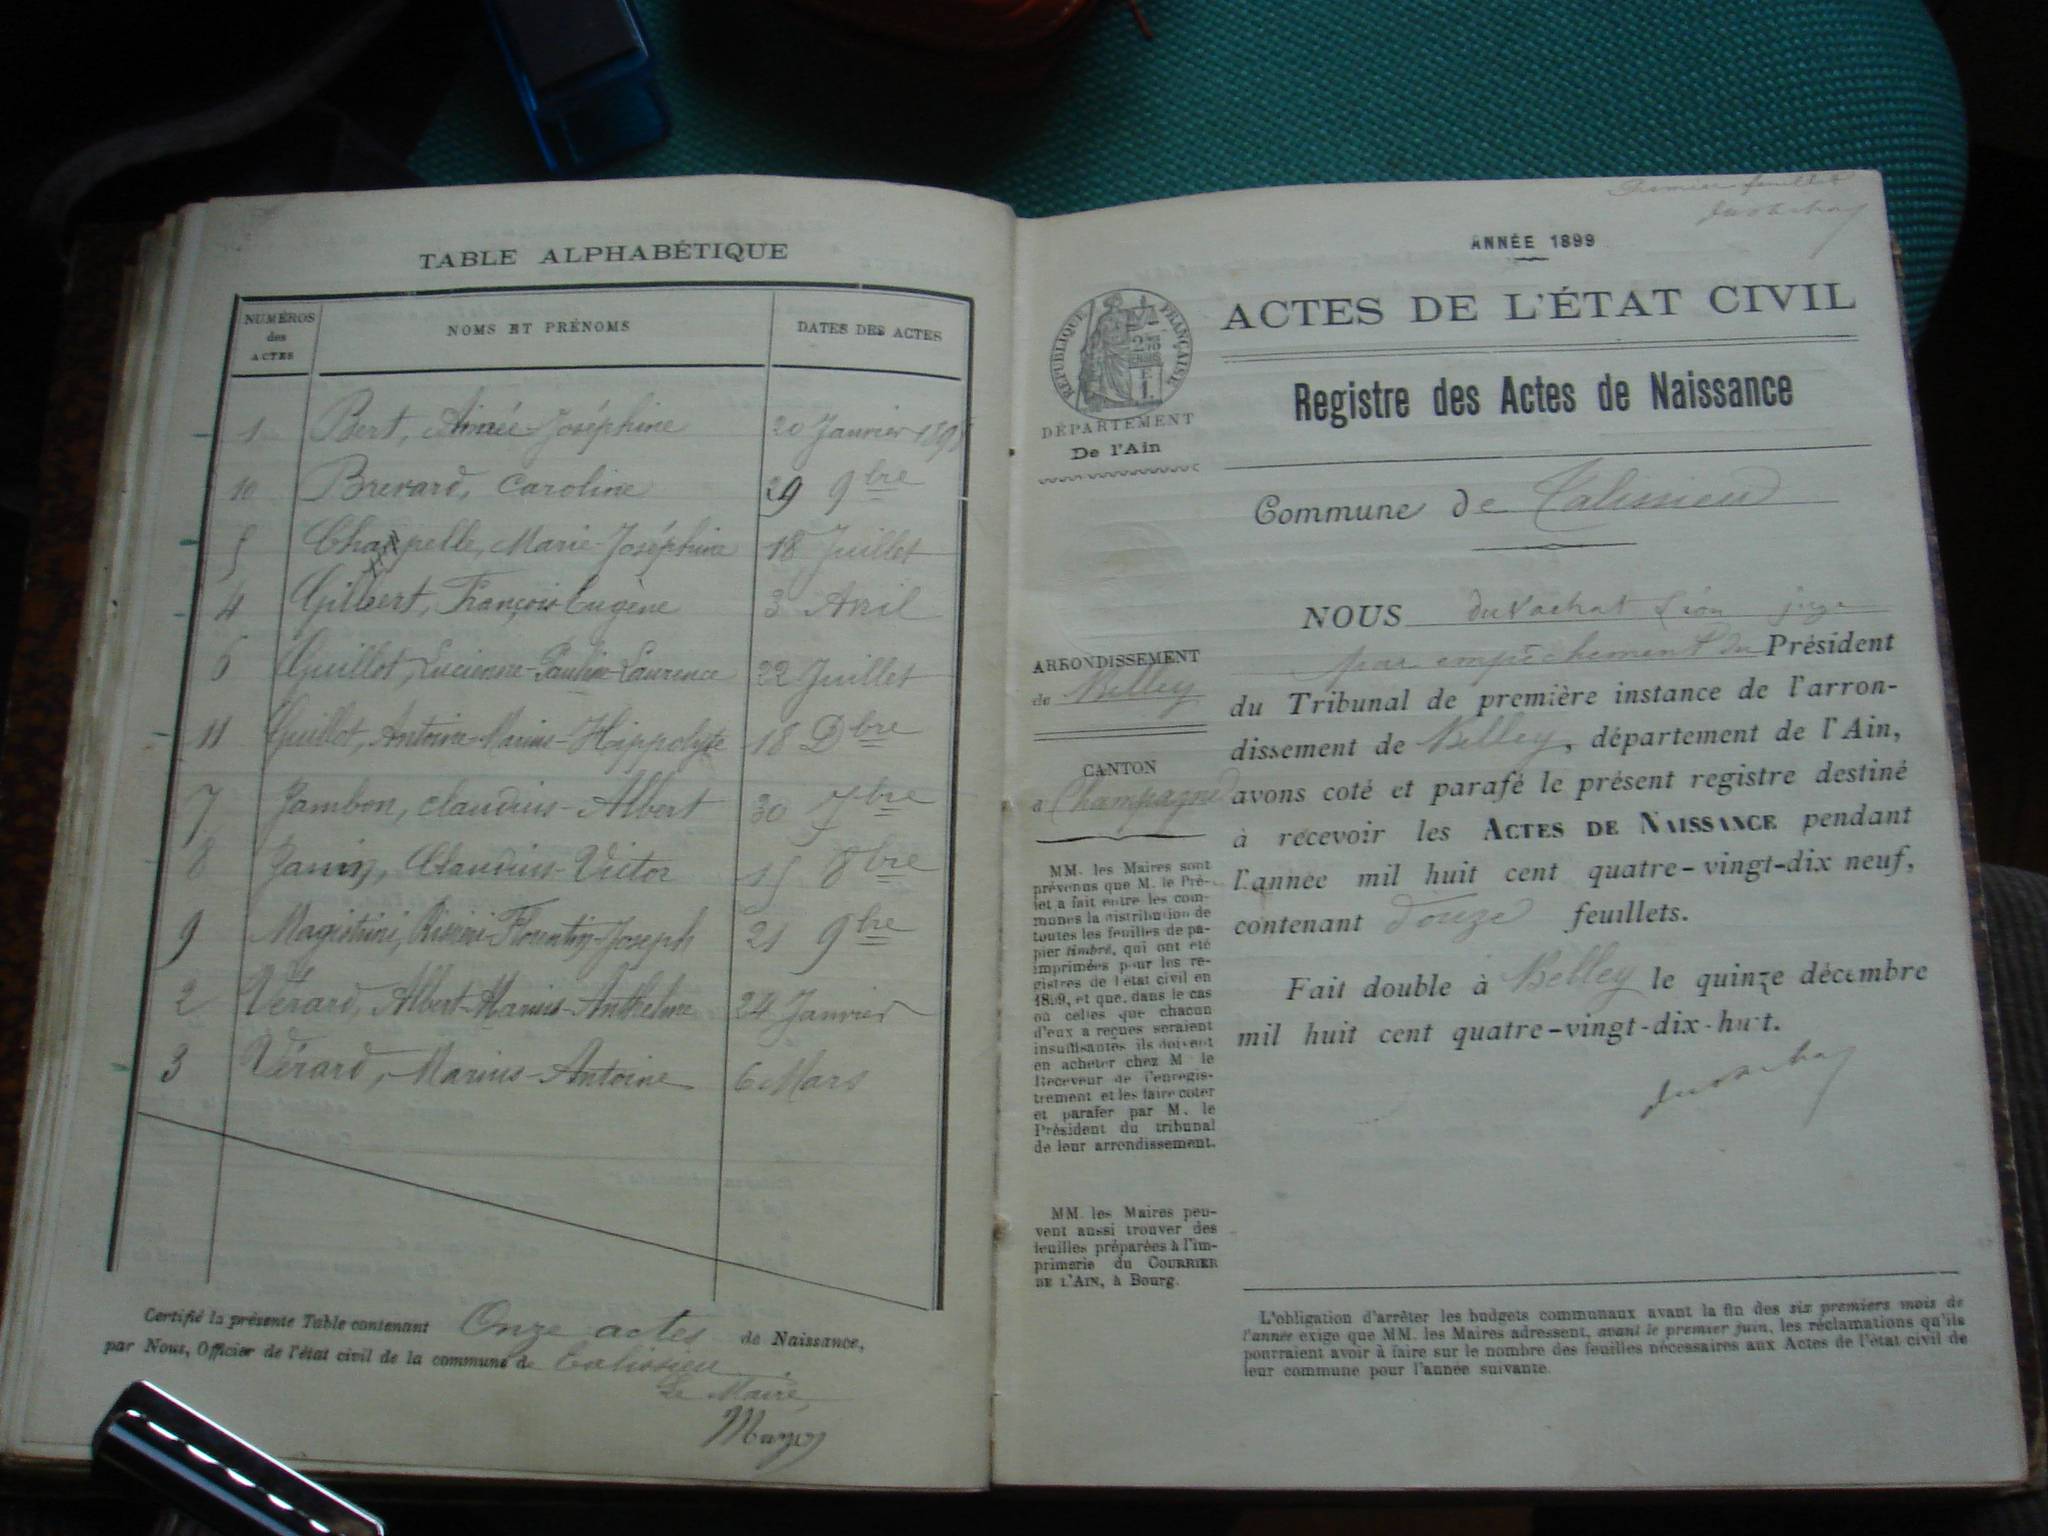 TABLE ALPHABÉTIQUE
NUMÉROS des ACTES NOMS ET PRÉNOMS DATES DES ACTES
1 Bert, Aimée Joséphine 20 Janvier
10 Brevard, Caroline 29 9bre
5 Chappelle, Marie-Joséphine 18 Juillet
4 Gilbert, François Eugène 3 Avril
6 Guillot, Lucienne-Pauline-Laurence 22 Juillet
11 Guillot, Antoine-Marius-Hippolyte 18 Dbre
7 Jambon, Claudius-Albert 30 7bre
8 Janin, Claudius-Victor 15 8bre
9 Magistrini, Florentin-Joseph 21 9bre
2 Vérard, Albert-Marius-Anthelme 24 Janvier
3 Vérard, Marius-Antoine 6 Mars
Certifié la présente Table contenant Onze actes de Naissance,
par Nous, Officier de l'état civil de la commune de Talissieu
Le Maire,
ANNÉE 1899
ACTES DE L'ÉTAT CIVIL
RÉPUBLIQUE FRANÇAISE
DÉPARTEMENT
De l'Ain
Registre des Actes de Naissance
Commune de Talissieu
ARRONDISSEMENT
de Belley
CANTON
a Champagne
MM. les Maires sont
prévenus que M. le Pré-
fet a fait entre les com-
munes la distribution de
toutes les feuilles de pa-
pier timbré, qui ont été
imprimées pour les re-
gistres de l'état civil en
1899, et que, dans le cas
où celles que chacun
d'eux a reçues seraient
insuffisantes ils doivent
en acheter chez M. le
Receveur de l'enregis-
trement et les faire coter
et parafer par M. le
Président du tribunal
de leur arrondissement.
MM. les Maires peu-
vent aussi trouver des
feuilles préparées à l'im-
primerie du COURRIER
DE L'AIN, à Bourg.
NOUS duvachat Léon juge
par empêchement du Président
du Tribunal de première instance de l'arron-
dissement de Belley, département de l'Ain,
avons coté et parafé le présent registre destiné
à recevoir les ACTES DE NAISSANCE pendant
l'année mil huit cent quatre-vingt-dix neuf,
contenant douze feuillets.
Fait double à Belley le quinze décembre
mil huit cent quatre-vingt-dix-huit.
L'obligation d'arrêter les budgets communaux avant la fin des six premiers mois de
l'année exige que MM. les Maires adressent, avant le premier juin, les réclamations qu'ils
pourraient avoir à faire sur le nombre des feuilles nécessaires aux Actes de l'état civil de
leur commune pour l'année suivante.